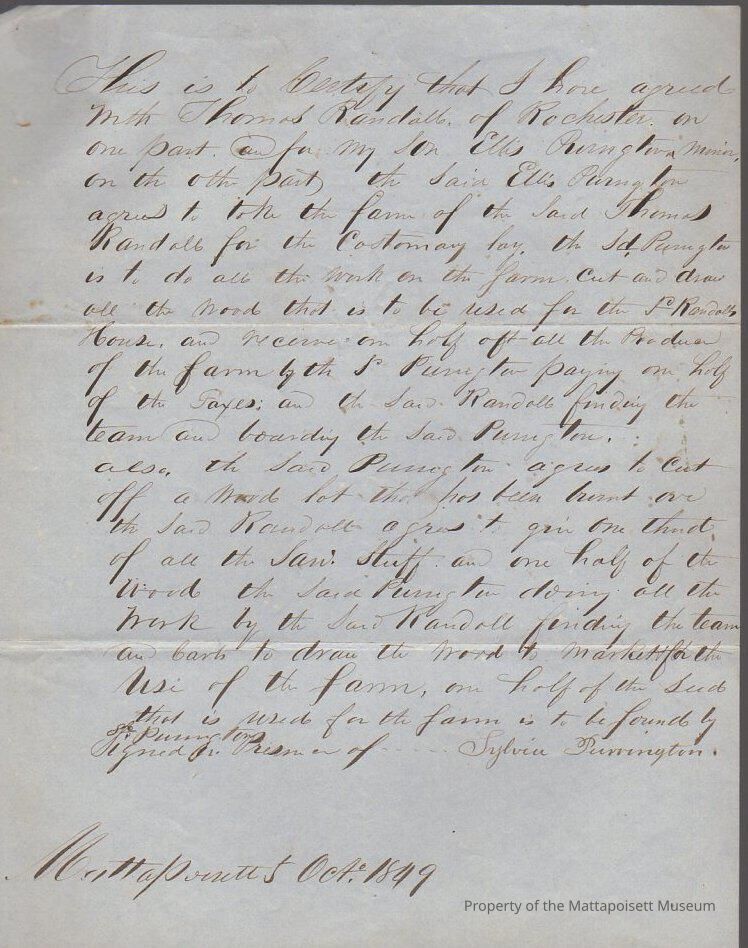 This is to Certify that I have agreed
With Thomas Randall. of Rochester. on
one part. and for My Son Ellis Purington minor,
on the othe part, the Said Ellis Purington
agrees to take the farm of the Said Thomas
Randall for the Costomary lay, the Sd. Purington
is to do all the work on the farm. Cut and draw
all the wood that is to be used for the Sd Randalls
House, and receive one half off all the Produce
of the farm by the Sd Purington paying one half
of the Taxes; and the Said Randall finding the
team and boarding the Said Purington.
also, the Said Purington agrees to Cut
off a Wood lot that has been burnt over
the Said Randall agrees to give one third
of all the Saw. Stuff. and one half of the
Wood the Said Purington doing all the
Work by the Said Randall finding the team
and Carts to draw the Wood to Market for the
Use of the farm, one half of the Seed
that is used for the farm is to be found by
Sd. Purington
Signed in Presence of ----- Sylvia Purrington.
Mattapoisett 5 Oct. 1849
Property of the Mattapoisett Museum